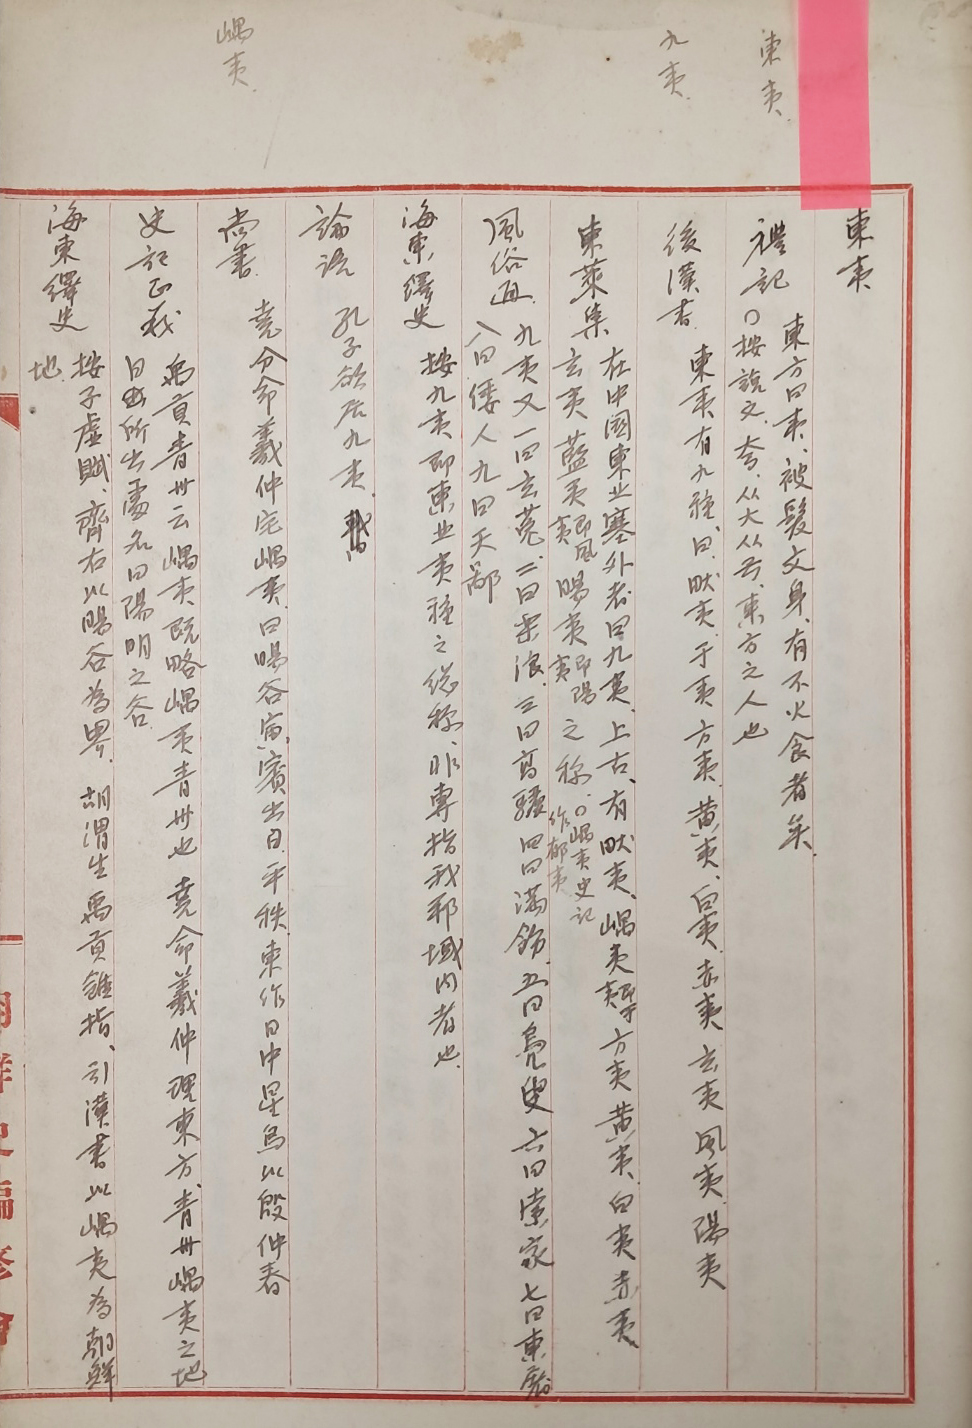 東夷
九夷
嵎夷
東夷
禮記
東方曰夷、被髮文身、有不火食者矣
○按說文、夸、从大从弓、東方之人也
後漢書
東夷有九種、曰、畎夷、于夷、方夷、黃夷、白夷、赤夷、玄夷、風夷、陽夷
東萊集
在中國東北塞外者曰九夷、上古、有畎夷、嵎夷即于夷方夷黃夷、白夷赤夷
玄夷藍夷即風夷暘夷即陽夷之称、○嵎夷史記作郁夷
風俗通
九夷又一曰玄菟、二曰樂浪、三曰高驪四曰滿飾、五曰鳧臾六曰索家七曰東屠
八曰倭人九曰天鄙
海東繹史
按九夷即東北夷種之総称、非專指我邦域內者也
論語
孔子欲居九夷、
尙書
堯分命羲仲宅嵎夷、曰暘谷寅賓出日、平秩東作日中星鳥以殷仲春
史記正義
禹貢青州云嵎夷旣略嵎夷青州也 堯命羲仲理東方、青州嵎夷之地
日所出處名曰陽明之谷
海東繹史
按子虛賦、齊右以暘谷為界、胡渭生禹貢錐指、引漢書以嵎夷為朝鮮
地
朝鮮史編修會